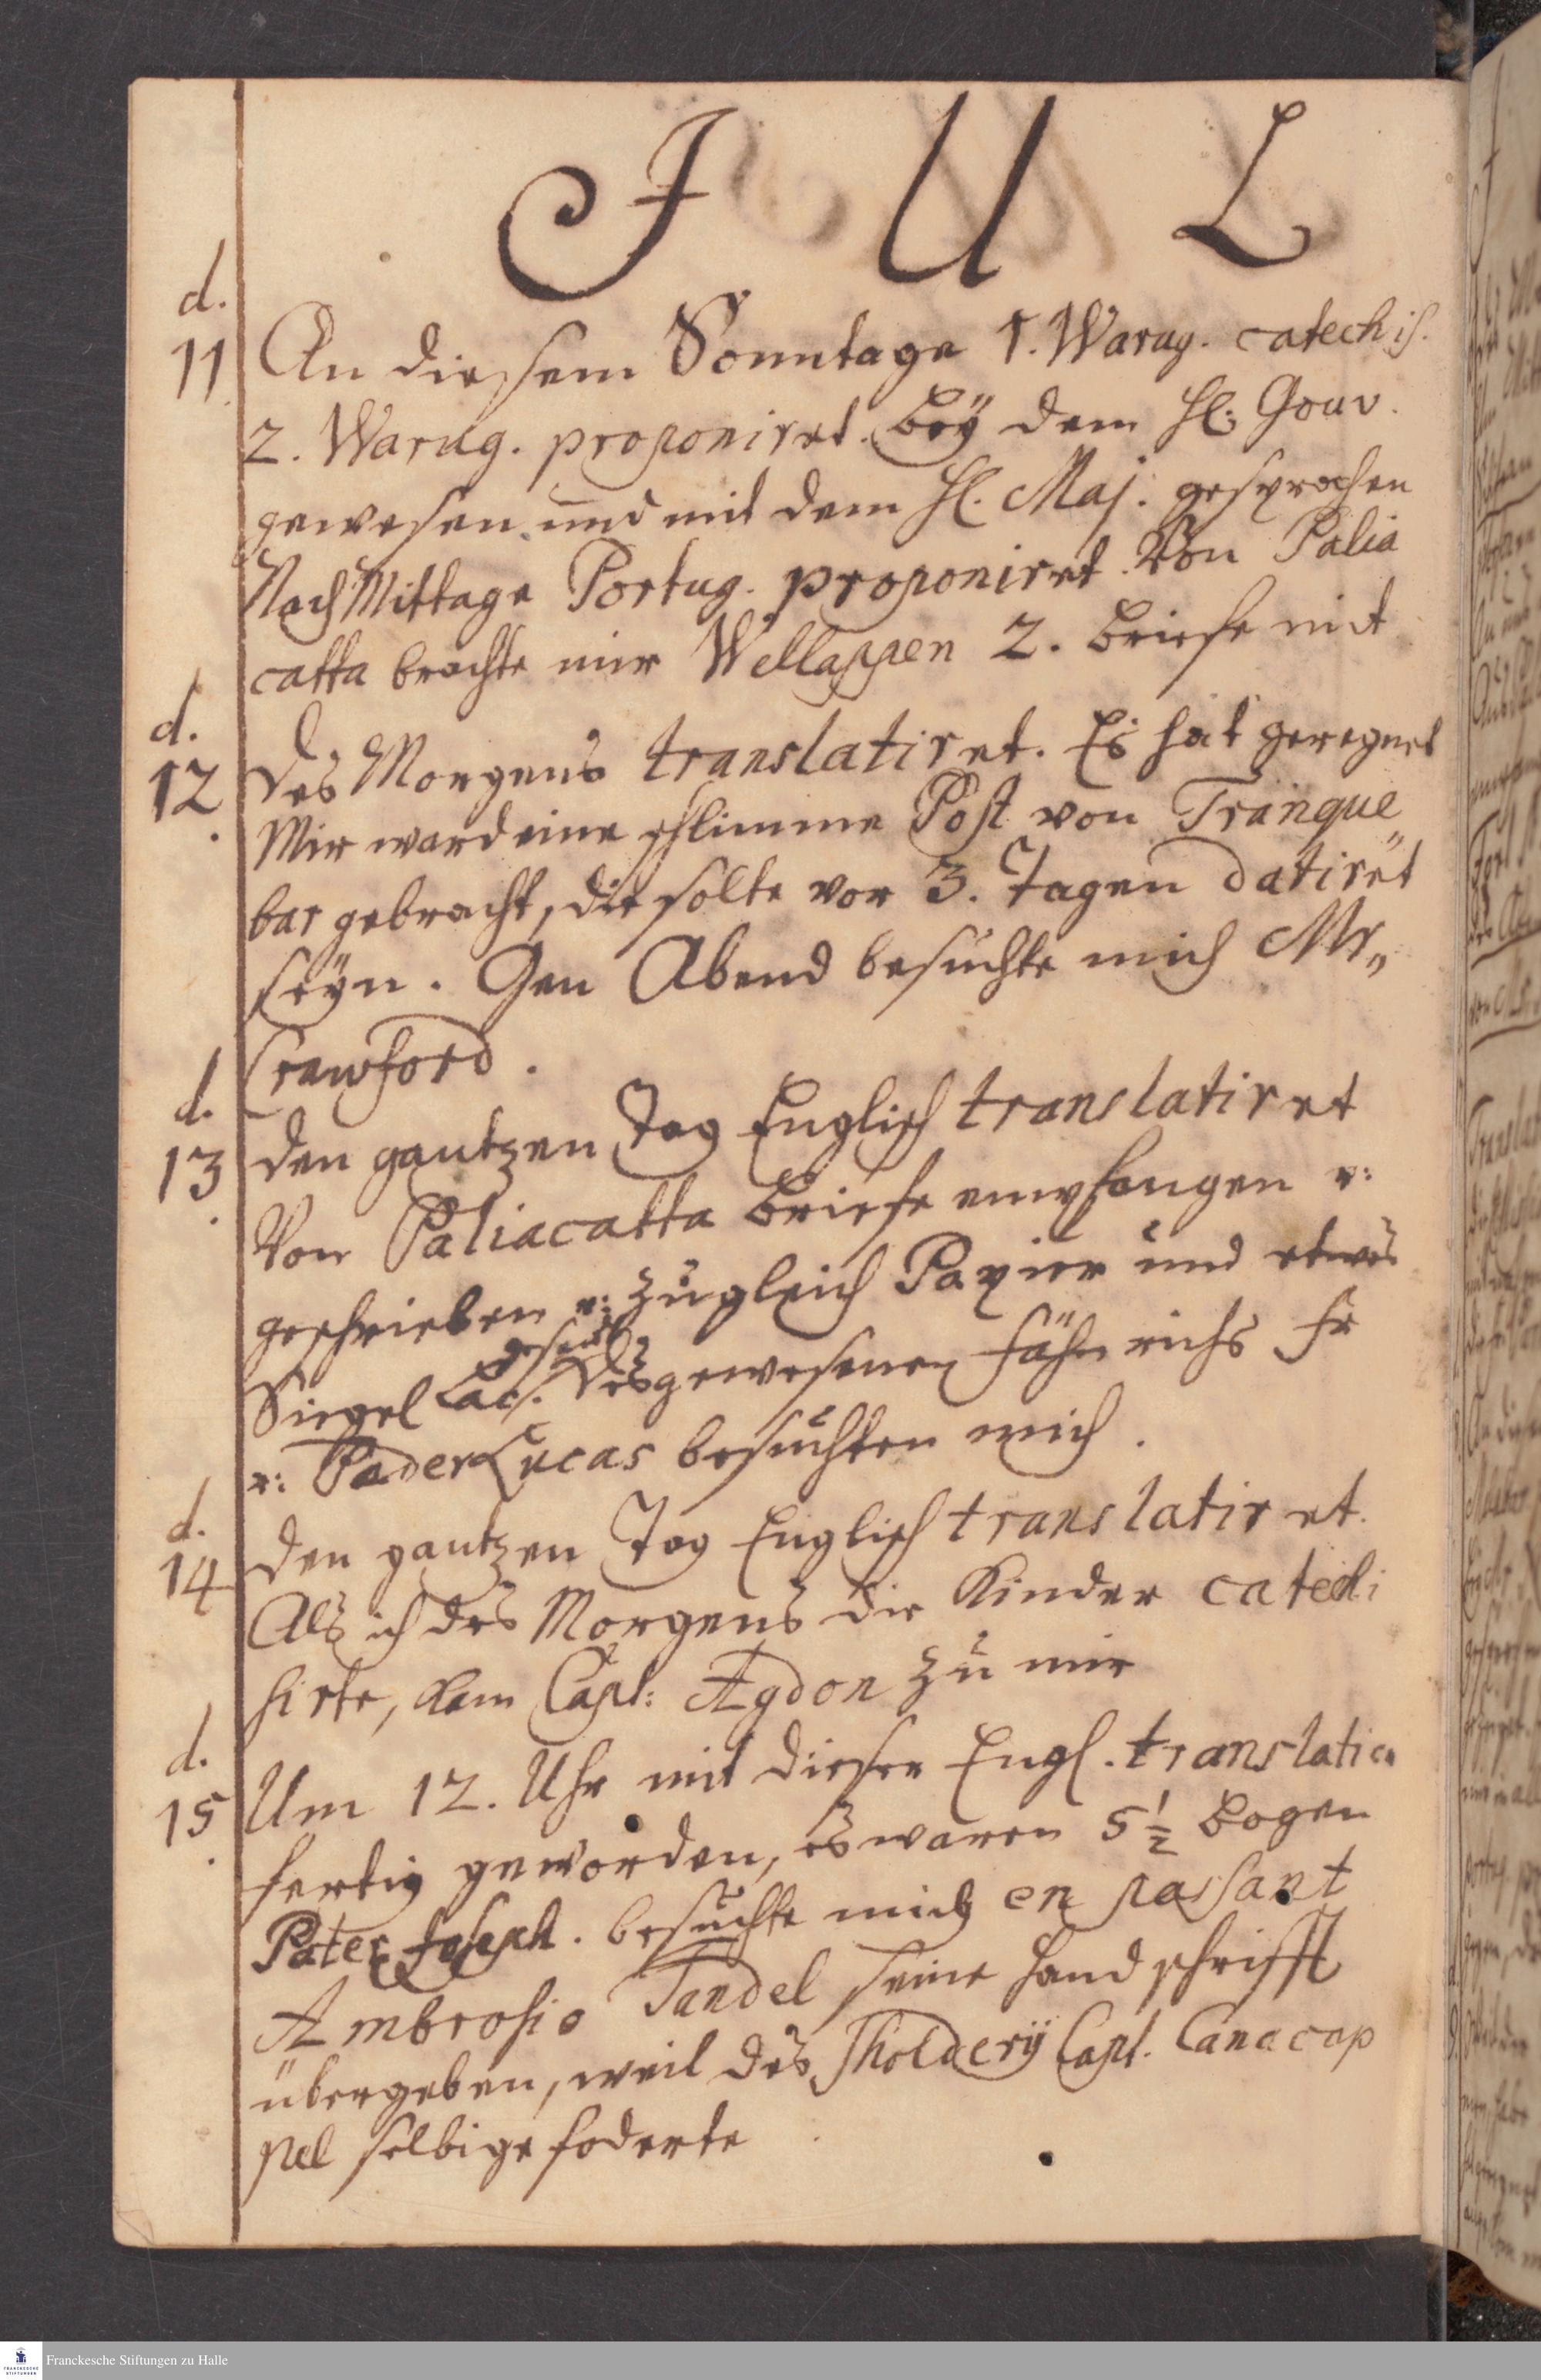 J U L
d.
11
An diesem Sonntage 1. Warug. catechis.
2. Warug. proponiret. Bey dem H. Gouv.
gewesen und mit dem H. Maj. gesprochen
Nach Mittage Portug. proponiret. Von Palia
catta brachte mir Wellappen 2. Briefe mit
d.
12
Des Morgens translatiret. Es hat geregnet
Mir ward eine schlimme Post von Tranque
bar gebracht, die solte vor 3. Tagen datiret
seÿn. Gen Abend besuchte mich Mr.
Crawford.
d.
13
Den gantzen Tag Englisch translatiret
Von Paliacatta Briefe empfangen u:
geschrieben u: zugleich Papier und etwas
gesandt
Siegel Lac. Des gewesenen Fähnrichs Fr
u: Pader Lucas besuchten mich.
d.
14
Den gantzen Tag Englisch translatiret.
Als ich des Morgens die Kinder catechi
sirte, kam Capt: Agdon zu mir
d.
15
Um 12. Uhr mit dieser Engl. translation
fertig geworden, es waren 5 1/2 Bogen
Pater Joseph. besuchte mich en passant
Ambrosio Tandel seine Handschrifft
übergeben, weil des Capt. Canacap
pel selbige foderte
Franckesche Stiftungen zu Halle